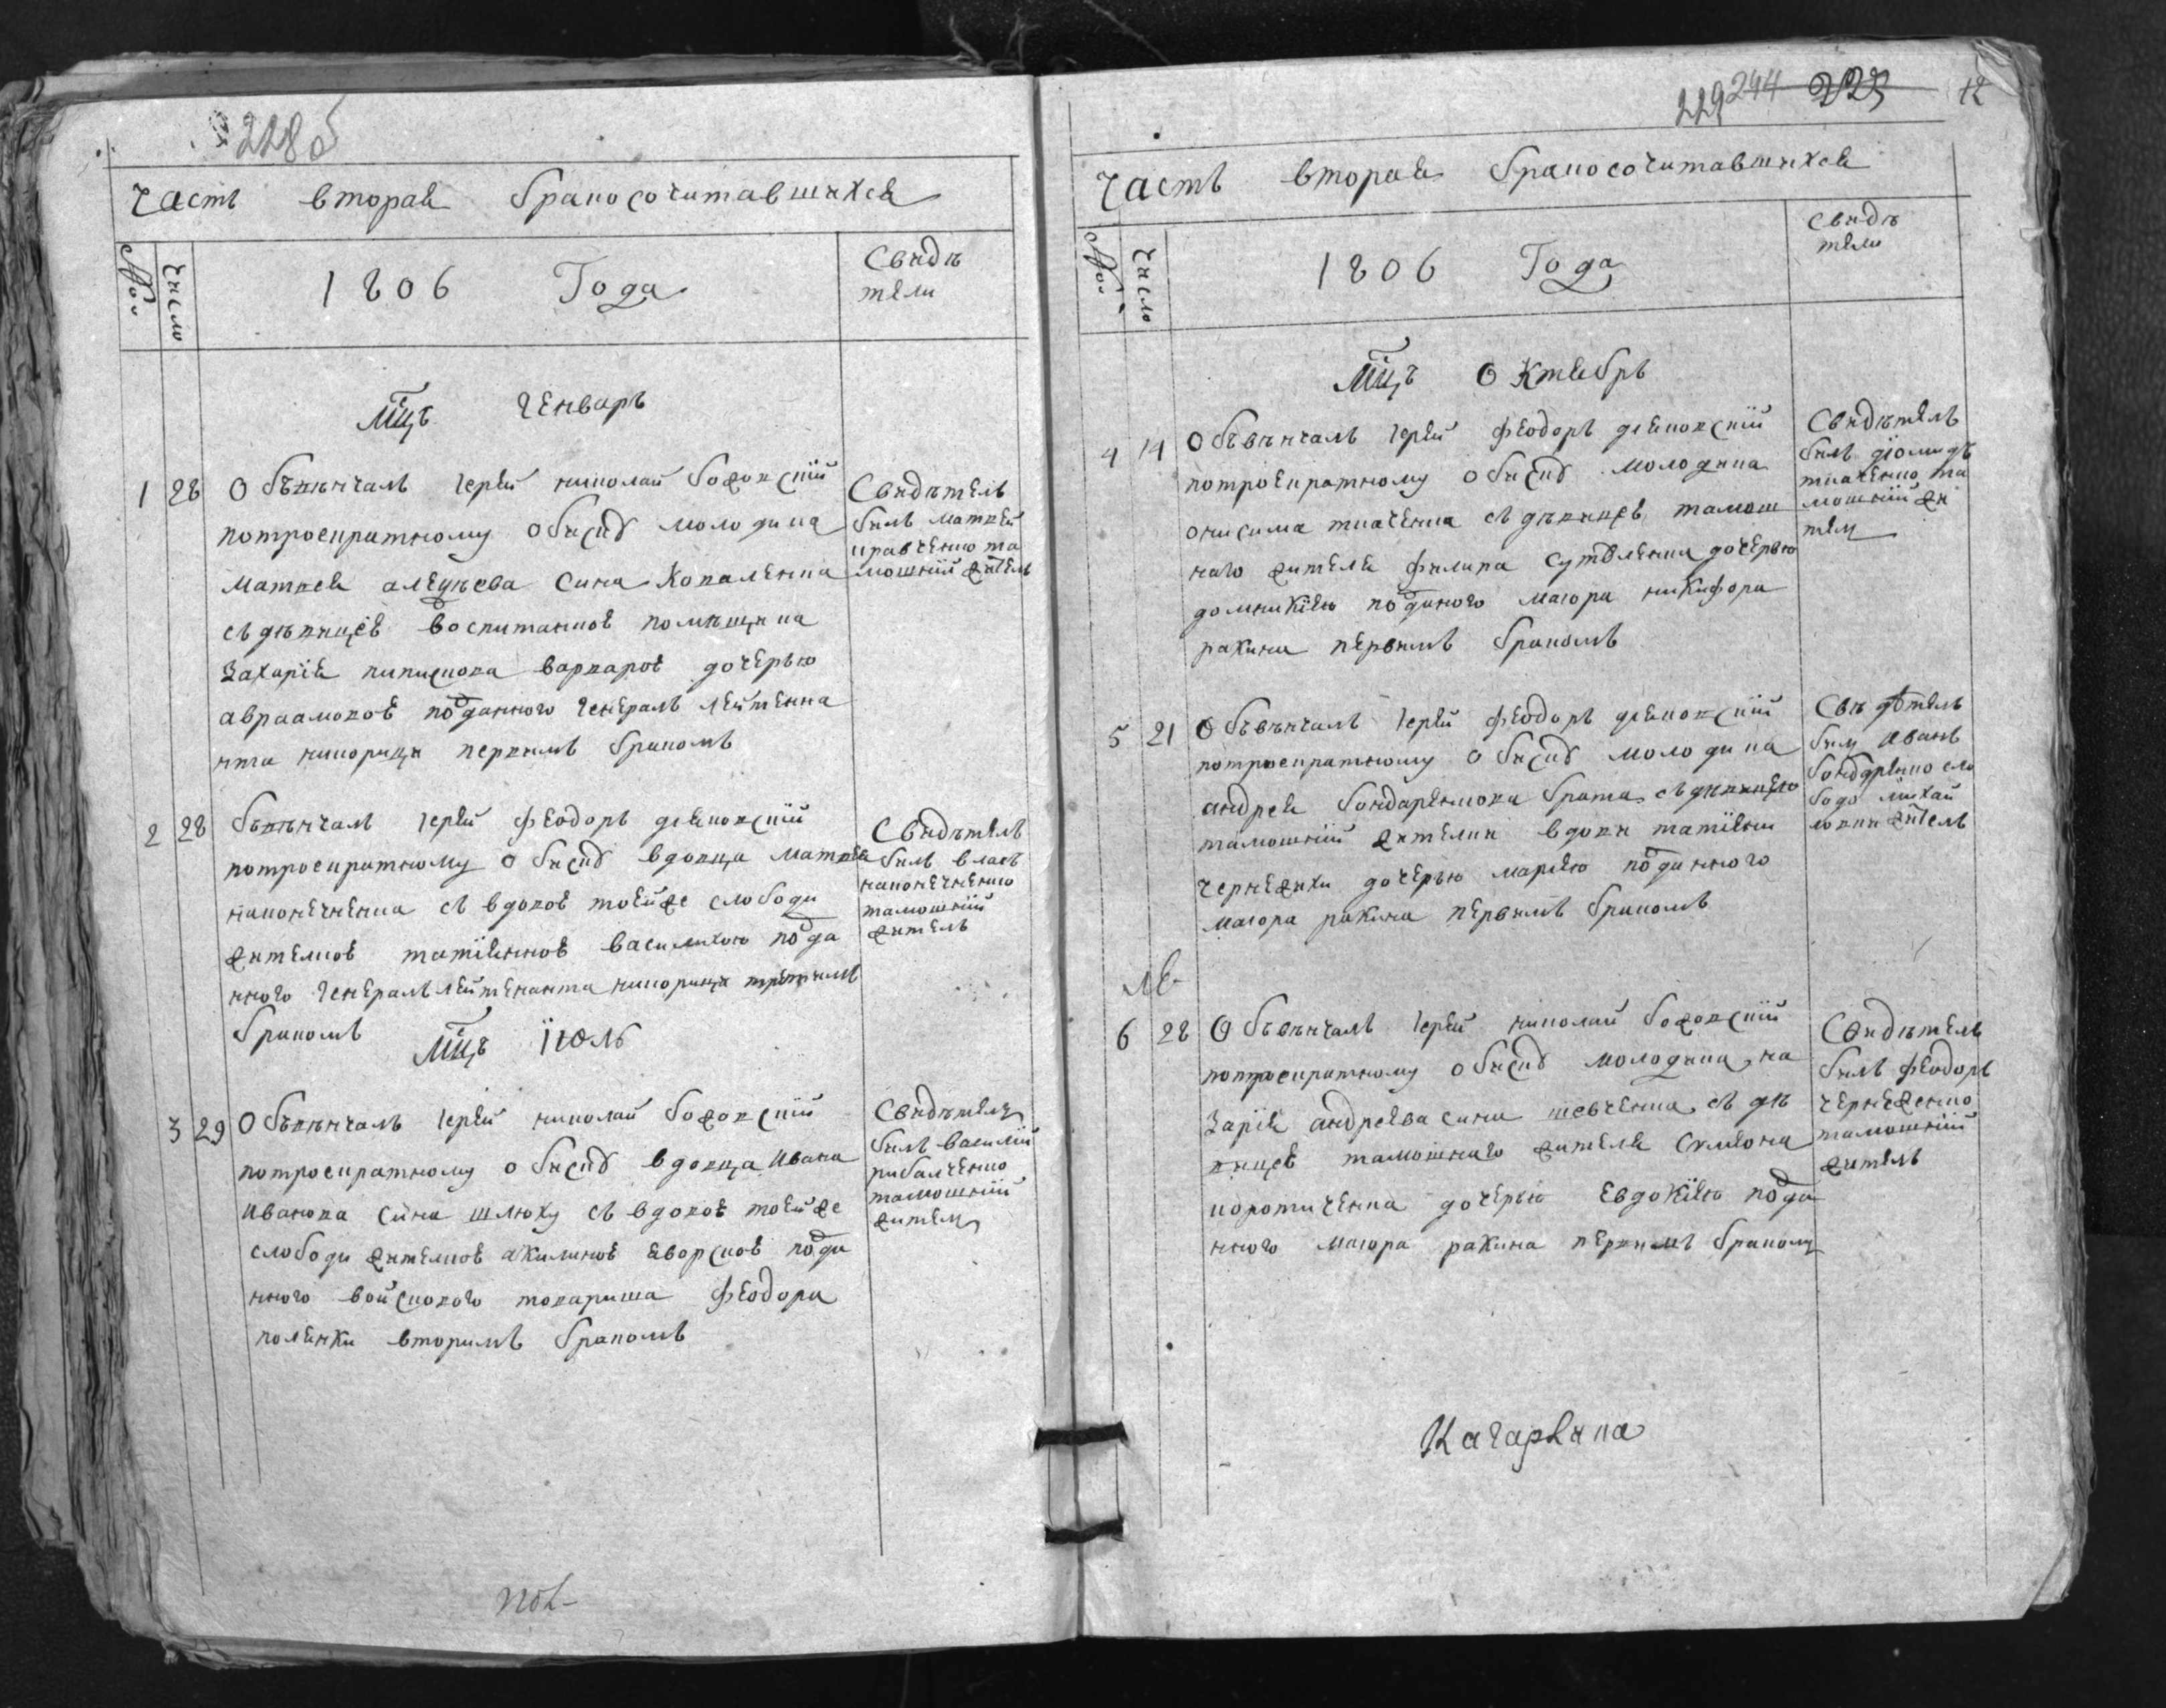 228об
Часть вторая бракосочитавшихся
№ Число
1806 Года
Свидѣ
тели
Мцъ Генварь
1 28
Обвѣнчалъ іерей николай божовскїй
потроекратному обиску молодика
матвея алеѯѣева сина Коваленка
съ дѣвицею воспитанною помѣщика
Захарїя варварою дочерью
авраамовою подданного генералъ лейтена
нта кикорици первимъ бракомъ
Свидѣтель
билъ матвей
кравченко та
мошнїй житель
2 28
бвѣнчалъ іерей феодоръ діяковскїй
потроекратному обиску вдовца матвея
наконечненка съ вдовою тоейже слободи
жителкою татїянною василихою подда
нного генералъ лейтенанта кикорици третимъ
бракомъ
Свидѣтель
билъ власъ
наконечненко
тамошнїй
житель
Мцъ Їюль
3 29
Обвѣнчалъ іерей николай божовскїй
потроекратному обиску вдовца Ивана
Иванова сина шлюху съ вдовою тоейже
слободи жителкою акилиною яворскою подда
нного войскового товариша Феодора
полянки вторимъ бракомъ
Свидѣтель
билъ василїй
рибалченко
тамошнїй
житель
229 244 229 12
Часть вторая бракосочитавшихся
№ Число
1806 Года
Свидѣ
тели
Мцъ Октябрь
4 14
Обвѣнчалъ іерей феодоръ діяковскїй
потроекратному обиску молодика
онисима ткаченка съ дѣвицею тамош
наго жителя филипа дочерью
домникїею поданого маіора никифора
ракина первимъ бракомъ
Свидѣтель
билъ діомидъ
ткаченко та
мошнїй жи
тель
5 21
Обвѣнчалъ іерей феодоръ діяковскїй
потроекратному обиску молодика
андрея бондаренкова брата съ дѣвицею
тамошнїй жителки вдови татїяни
чернежихи дочерью марїею поданного
маіора ракина первимъ бракомъ
Свѣдѣтель
билъ Иванъ
бондаренко сло
боди михай
ловки житель
6 28
Обвѣнчалъ іерей николай божовскїй
потроекратному обиску молодика на
Зарїя андреева сина шевченка съ дѣ
вицею тамошнаго жителя Сумеона
коротиченка дочерью евдокїею подда
нного маіора ракина первимъ бракомъ
Свидѣтель
билъ феодоръ
чернеженко
тамошнїй
житель